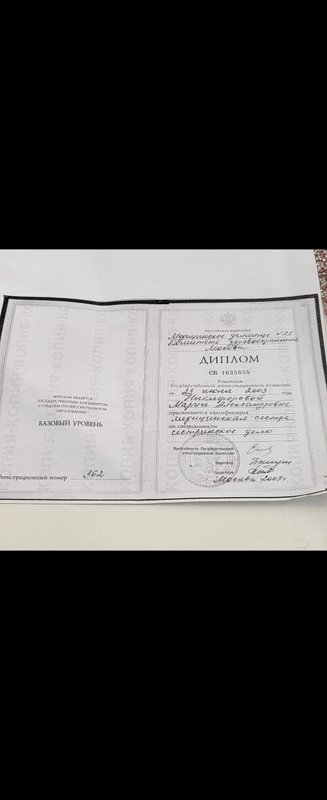 ДИПЛОМ ЯВЛЯЕТСЯ
ГОСУДАРСТВЕННЫМ ДОКУМЕНТОМ
О СРЕДНЕМ ПРОФЕССИОНАЛЬНОМ
ОБРАЗОВАНИИ
БАЗОВЫЙ УРОВЕНЬ
Регистрационный номер 362
РОССИЙСКАЯ ФЕДЕРАЦИЯ
Медицинское училище
Комитета здравоохранения
Москвы
ДИПЛОМ
СБ 1635855
Решением
Государственной аттестационной комиссии
от 23 июня 2003 года
Никифоровой
Марине Александровне
присваивается квалификация
медицинская сестра
по специальности
сестринское дело
Председатель Государственной
аттестационной комиссии
Директор
Секретарь
Москва 2003г